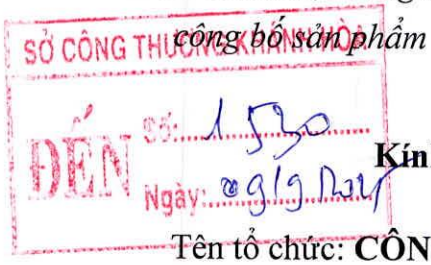 công bố sản phẩm
SỞ CÔNG THƯƠNG KHÁNH HÒA
ĐẾN
Số: 1530
Ngày:
Kín
Tên tổ chức: CÔN